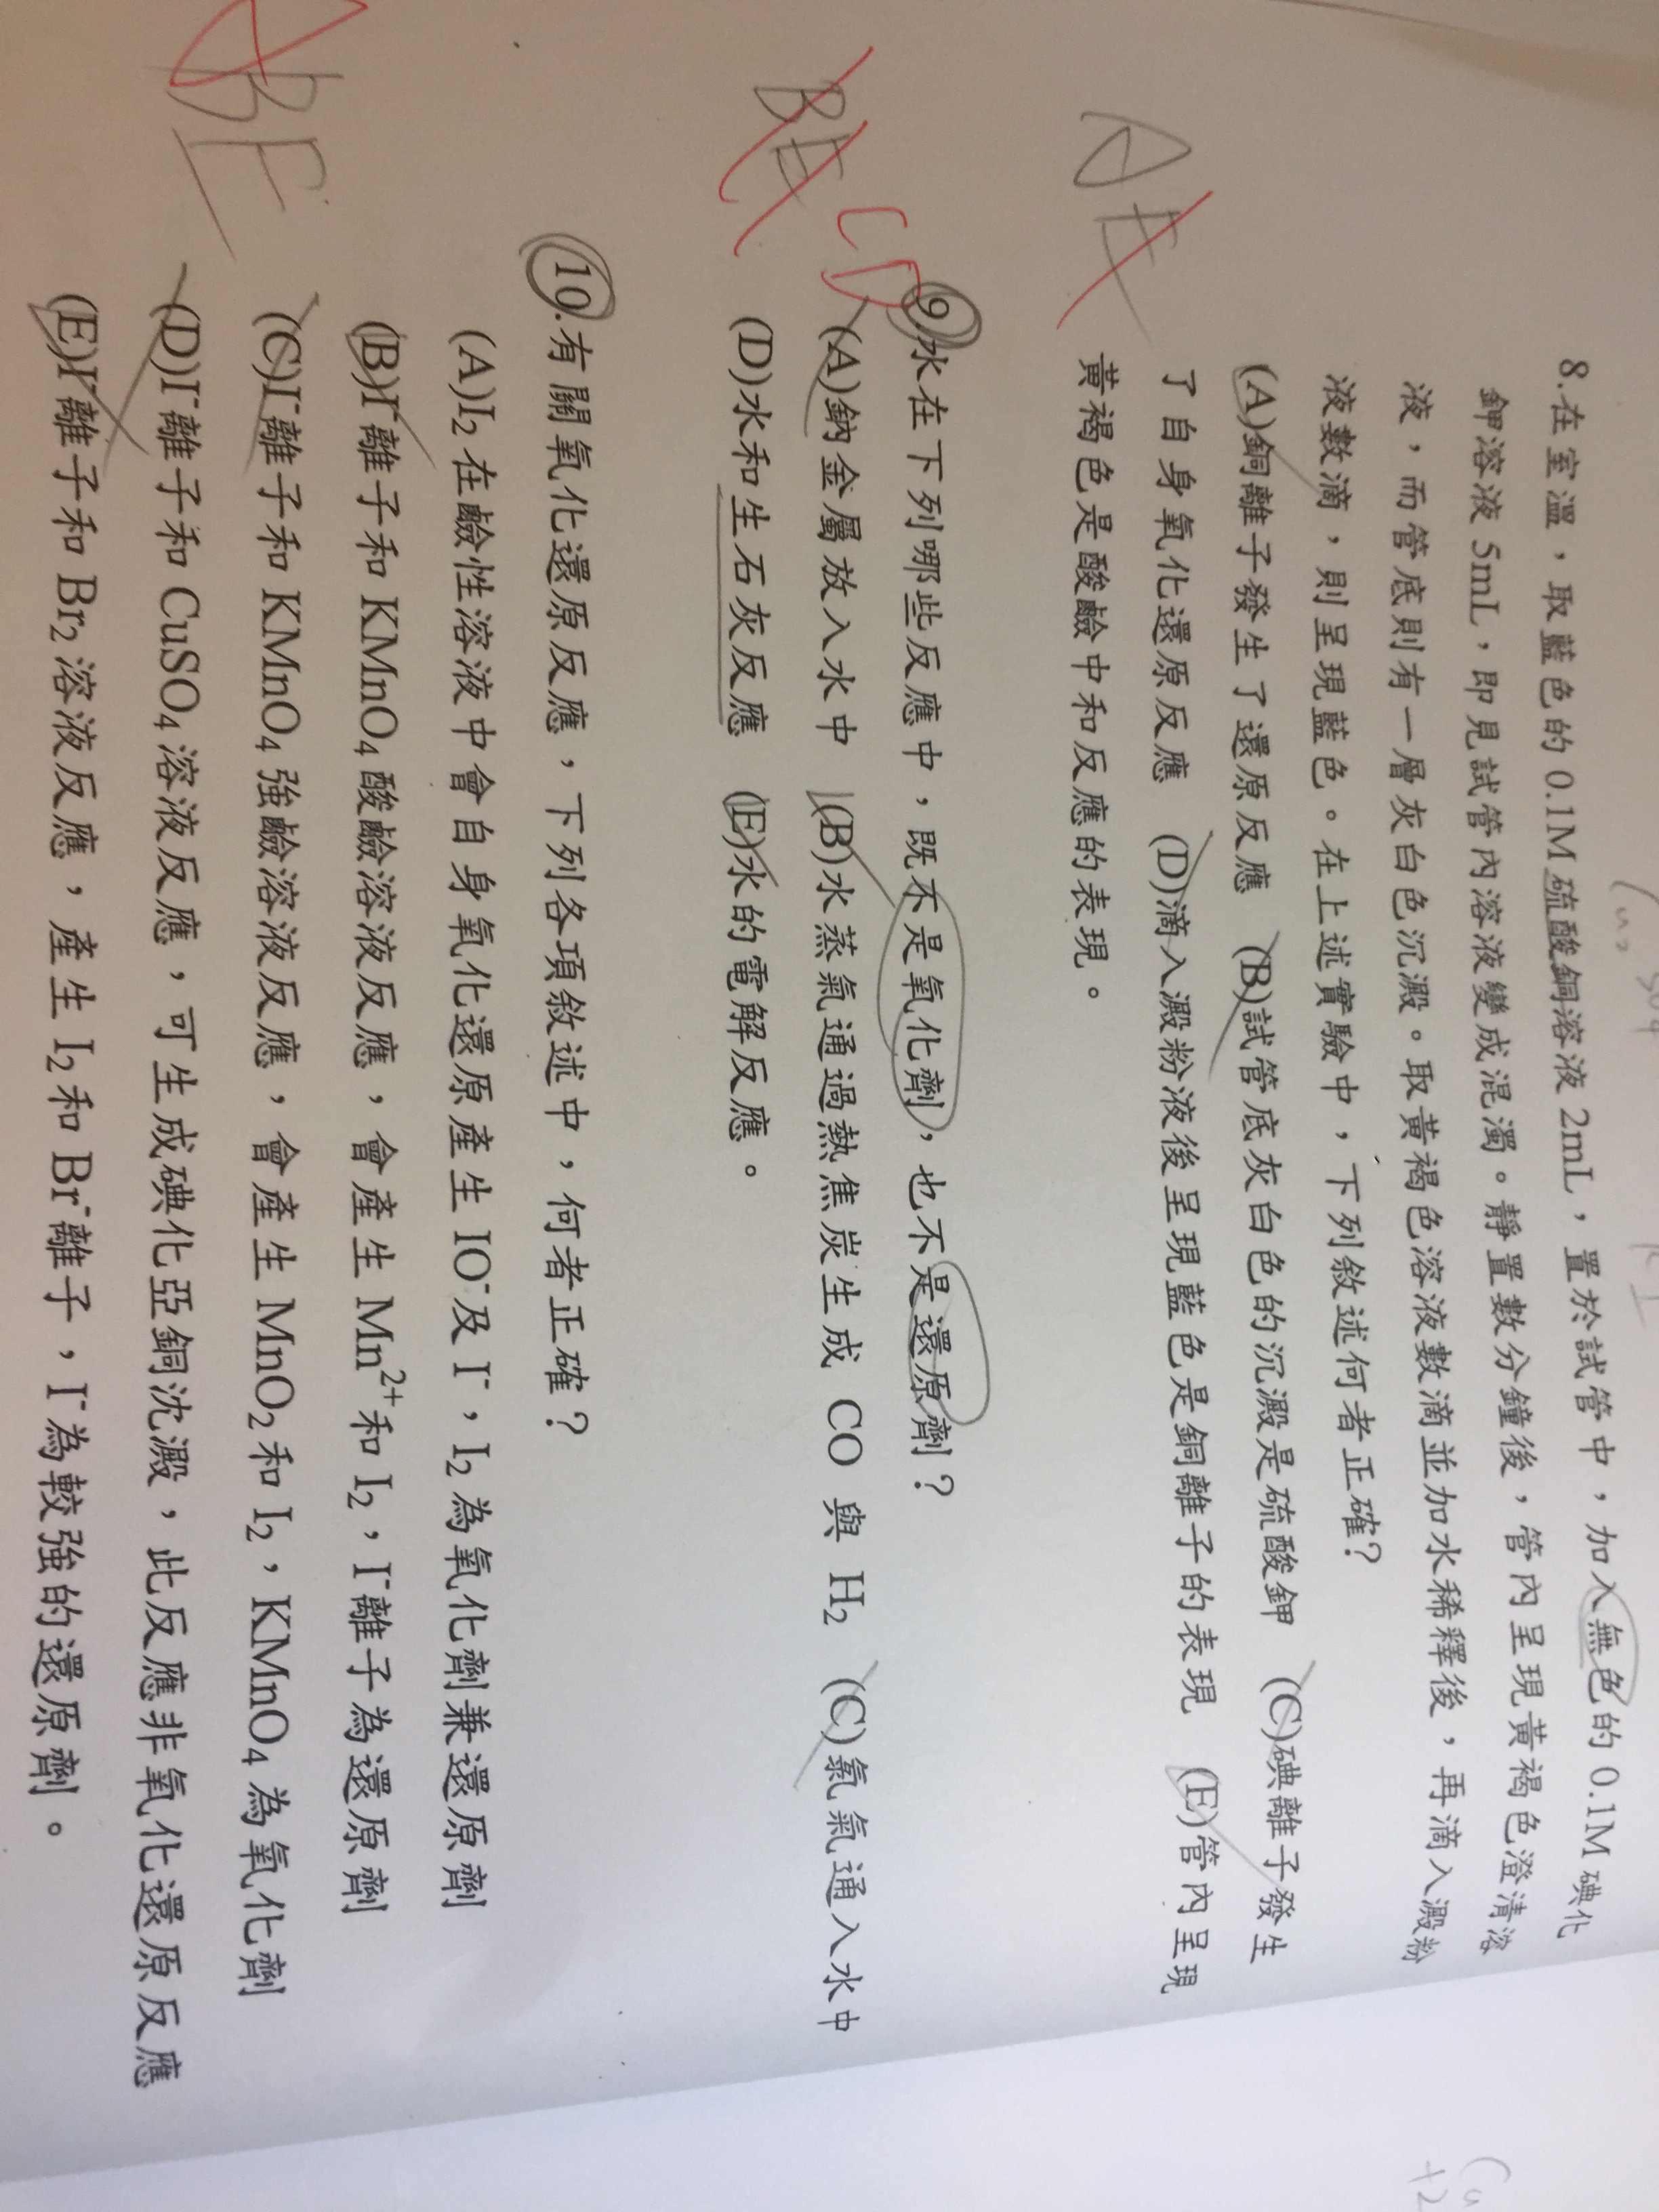 8.在室溫，取藍色的 0.1M 硫酸銅溶液 2mL，置於試管中，加入無色的 0.1M 碘化
鉀溶液 5mL，即見試管內溶液變成混濁。靜置數分鐘後，管內呈現黃褐色澄清溶
液，而管底則有一層灰白色沉澱。取黃褐色溶液數滴並加水稀釋後，再滴入澱粉
液數滴，則呈現藍色。在上述實驗中，下列敘述何者正確?
(A)銅離子發生了還原反應 (B)試管底灰白色的沉澱是硫酸鉀 (C)碘離子發生
了自身氧化還原反應 (D)滴入澱粉液後呈現藍色是銅離子的表現 (E)管內呈現
黃褐色是酸鹼中和反應的表現。
AE
9.水在下列哪些反應中，既不是氧化劑，也不是還原劑？
(A)鈉金屬放入水中 (B)水蒸氣通過熱焦炭生成 CO 與 H₂ (C)氯氣通入水中
(D)水和生石灰反應 (E)水的電解反應。
BE
CD
10.有關氧化還原反應，下列各項敘述中，何者正確？
(A)I₂在鹼性溶液中會自身氧化還原產生 IO⁻及 I⁻，I₂為氧化劑兼還原劑
(B)I⁻離子和 KMnO₄酸鹼溶液反應，會產生 Mn²⁺和 I₂，I⁻離子為還原劑
(C)I⁻離子和 KMnO₄強鹼溶液反應，會產生 MnO₂和 I₂，KMnO₄為氧化劑
(D)I⁻離子和 CuSO₄溶液反應，可生成碘化亞銅沈澱，此反應非氧化還原反應
(E)I⁻離子和 Br₂溶液反應，產生 I₂和 Br⁻離子，I⁻為較強的還原劑。
BE